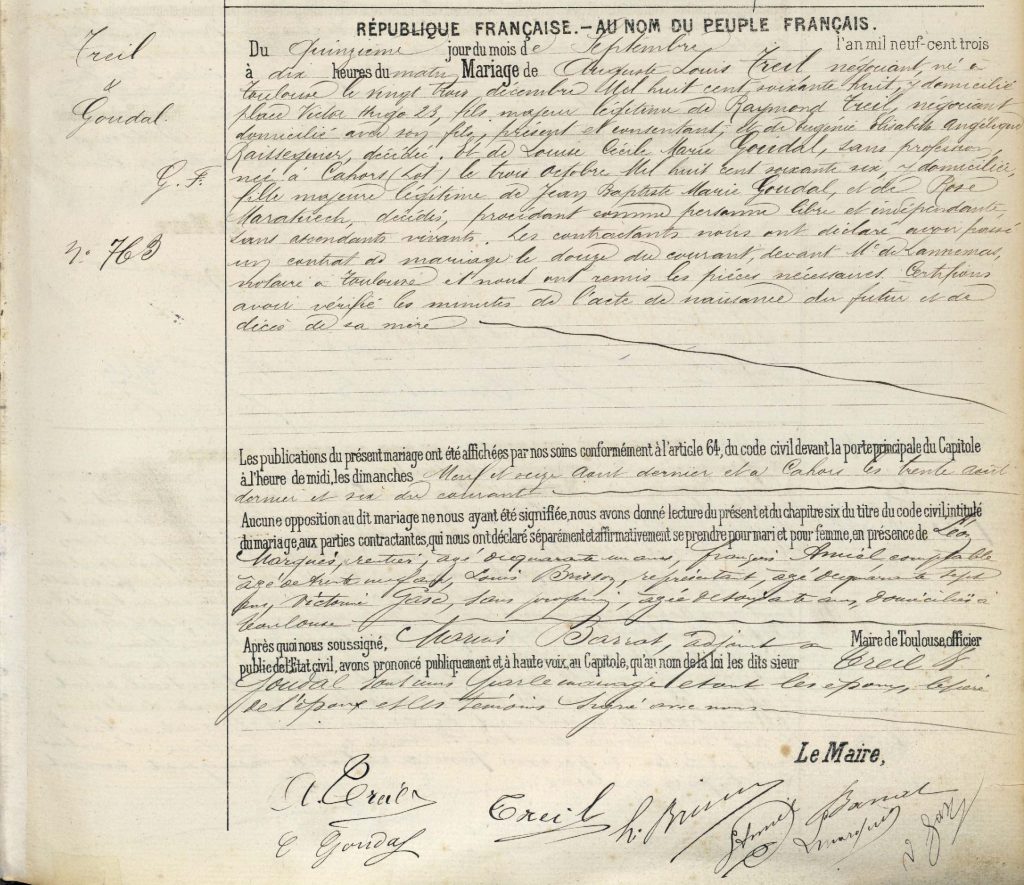 Treil
&
Goudal.
G. F.
N° 763
RÉPUBLIQUE FRANÇAISE.—AU NOM DU PEUPLE FRANÇAIS.
Du Quinzième jour du mois de Septembre l'an mil neuf-cent trois
à dix heures du matin Mariage de Auguste Louis Treil négociant, né à
Toulouse le vingt trois décembre Mil huit cent soixante huit, y domicilié
place Victor Hugo 23, fils majeur légitime de Raymond Treil, négociant
domicilié avec son fils, présent et consentant; et de Eugénie Elisabeth Angélique
Raisseguier, décédée. Et de Louise Cécile Marie Goudal, sans profession,
née à Cahors (Lot) le trois octobre Mil huit cent soixante six, y domiciliée,
fille majeure légitime de Jean Baptiste Marie Goudal, et de Rose
décédés, procédant comme personne libre et indépendante,
sans ascendants vivants. Les contractants nous ont déclaré avoir passé
un contrat de mariage le douze du courant, devant Me de Lannemas,
notaire à Toulouse et nous ont remis les pièces nécessaires. Certifions
avoir vérifié les minutes de l'acte de naissance du futur et de
décès de sa mère
Les publications du présent mariage ont été affichées par nos soins conformément à l'article 64, du code civil devant la porte principale du Capitole
à l'heure de midi, les dimanches Neuf et seize août dernier et à Cahors les trente août
dernier et six du courant
Aucune opposition au dit mariage ne nous ayant été signifiée, nous avons donné lecture du présent et du chapitre six du titre du code civil, intitulé
du mariage, aux parties contractantes, qui nous ont déclaré séparément et affirmativement se prendre pour mari et pour femme, en présence de Léon
Marquès, rentier, agé de quarante un ans, François Amiel comptable
agé de trente neuf ans, Louis Brisson, représentant, agé de quarante sept
ans, Victorine Gasc, sans profession, agée de soixante ans, domiciliés à
Toulouse
Après quoi nous soussigné, Marius Barrat, adjoint au Maire de Toulouse, officier
public de l'État civil, avons prononcé publiquement et à haute voix, au Capitole, qu'au nom de la loi les dits sieur Treil &
Goudal sont unis par le mariage et ont les époux, le père
de l'époux et les témoins signé avec nous
Le Maire,
A. Treil
Treil
Barrat
C Goudal